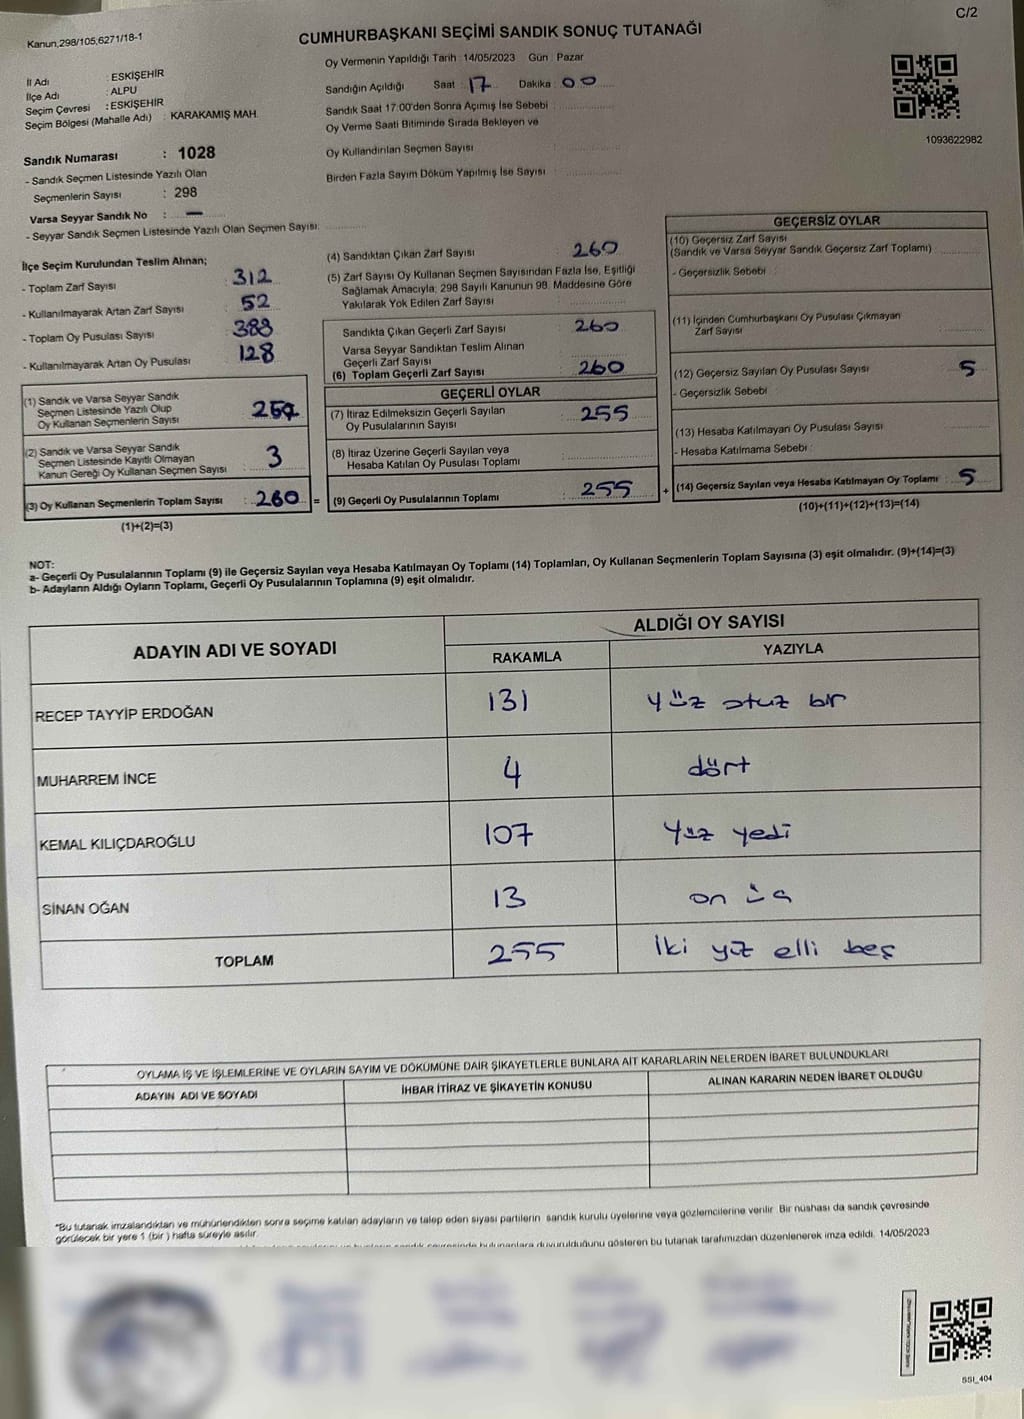 C/2
Kanun,298/105,6271/18-1
CUMHURBAŞKANI SEÇİMİ SANDIK SONUÇ TUTANAĞI
İl Adı : ESKİŞEHİR
İlçe Adı : ALPU
Seçim Çevresi : ESKİŞEHİR
Seçim Bölgesi (Mahalle Adı) : KARAKAMIŞ MAH.
Sandık Numarası : 1028
- Sandık Seçmen Listesinde Yazılı Olan
Seçmenlerin Sayısı : 298
Varsa Seyyar Sandık No : —
- Seyyar Sandık Seçmen Listesinde Yazılı Olan Seçmen Sayısı:
Oy Vermenin Yapıldığı Tarih : 14/05/2023 Gün : Pazar
Sandığın Açıldığı Saat : 17 Dakika : 00
Sandık Saat 17:00'den Sonra Açımış İse Sebebi :
Oy Verme Saati Bitiminde Sırada Bekleyen ve
Oy Kullandırılan Seçmen Sayısı :
Birden Fazla Sayım Döküm Yapılmış İse Sayısı :
1093622982
İlçe Seçim Kurulundan Teslim Alınan;
- Toplam Zarf Sayısı : 312
- Kullanılmayarak Artan Zarf Sayısı : 52
- Toplam Oy Pusulası Sayısı : 388
- Kullanılmayarak Artan Oy Pusulası : 128
(1) Sandık ve Varsa Seyyar Sandık
Seçmen Listesinde Yazılı Olup
Oy Kullanan Seçmenlerin Sayısı : 257
(2) Sandık ve Varsa Seyyar Sandık
Seçmen Listesinde Kayıtlı Olmayan
Kanun Gereği Oy Kullanan Seçmen Sayısı : 3
(3) Oy Kullanan Seçmenlerin Toplam Sayısı : 260 =
(1)+(2)=(3)
(4) Sandıktan Çıkan Zarf Sayısı : 260
(5) Zarf Sayısı Oy Kullanan Seçmen Sayısından Fazla İse, Eşitliği
Sağlamak Amacıyla; 298 Sayılı Kanunun 98. Maddesine Göre
Yakılarak Yok Edilen Zarf Sayısı :
Sandıkta Çıkan Geçerli Zarf Sayısı : 260
Varsa Seyyar Sandıktan Teslim Alınan
Geçerli Zarf Sayısı :
(6) Toplam Geçerli Zarf Sayısı : 260
GEÇERLİ OYLAR
(7) İtiraz Edilmeksizin Geçerli Sayılan
Oy Pusulalarının Sayısı : 255
(8) İtiraz Üzerine Geçerli Sayılan veya
Hesaba Katılan Oy Pusulası Toplamı :
(9) Geçerli Oy Pusulalarının Toplamı : 255 +
GEÇERSİZ OYLAR
(10) Geçersiz Zarf Sayısı
(Sandık ve Varsa Seyyar Sandık Geçersiz Zarf Toplamı) :
- Geçersizlik Sebebi :
(11) İçinden Cumhurbaşkanı Oy Pusulası Çıkmayan
Zarf Sayısı :
(12) Geçersiz Sayılan Oy Pusulası Sayısı : 5
- Geçersizlik Sebebi :
(13) Hesaba Katılmayan Oy Pusulası Sayısı :
- Hesaba Katılmama Sebebi :
(14) Geçersiz Sayılan veya Hesaba Katılmayan Oy Toplamı : 5
(10)+(11)+(12)+(13)=(14)
NOT:
a- Geçerli Oy Pusulalarının Toplamı (9) ile Geçersiz Sayılan veya Hesaba Katılmayan Oy Toplamı (14) Toplamları, Oy Kullanan Seçmenlerin Toplam Sayısına (3) eşit olmalıdır. (9)+(14)=(3)
b- Adayların Aldığı Oyların Toplamı, Geçerli Oy Pusulalarının Toplamına (9) eşit olmalıdır.
ADAYIN ADI VE SOYADI ALDIĞI OY SAYISI
RAKAMLA YAZIYLA
RECEP TAYYİP ERDOĞAN 131 yüz otuz bir
MUHARREM İNCE 4 dört
KEMAL KILIÇDAROĞLU 107 Yüz yedi
SİNAN OĞAN 13 on üç
TOPLAM 255 İki yüz elli beş
OYLAMA İŞ VE İŞLEMLERİNE VE OYLARIN SAYIM VE DÖKÜMÜNE DAİR ŞİKAYETLERLE BUNLARA AİT KARARLARIN NELERDEN İBARET BULUNDUKLARI
ADAYIN ADI VE SOYADI İHBAR İTİRAZ VE ŞİKAYETİN KONUSU ALINAN KARARIN NEDEN İBARET OLDUĞU
*Bu tutanak imzalandıktan ve mühürlendikten sonra seçime katılan adayların ve talep eden siyasi partilerin sandık kurulu üyelerine veya gözlemcilerine verilir. Bir nüshası da sandık çevresinde
görülecek bir yere 1 (bir ) hafta süreyle asılır.
bulunanlara duyurulduğunu gösteren bu tutanak tarafımızdan düzenlenerek imza edildi. 14/05/2023
SSI_404